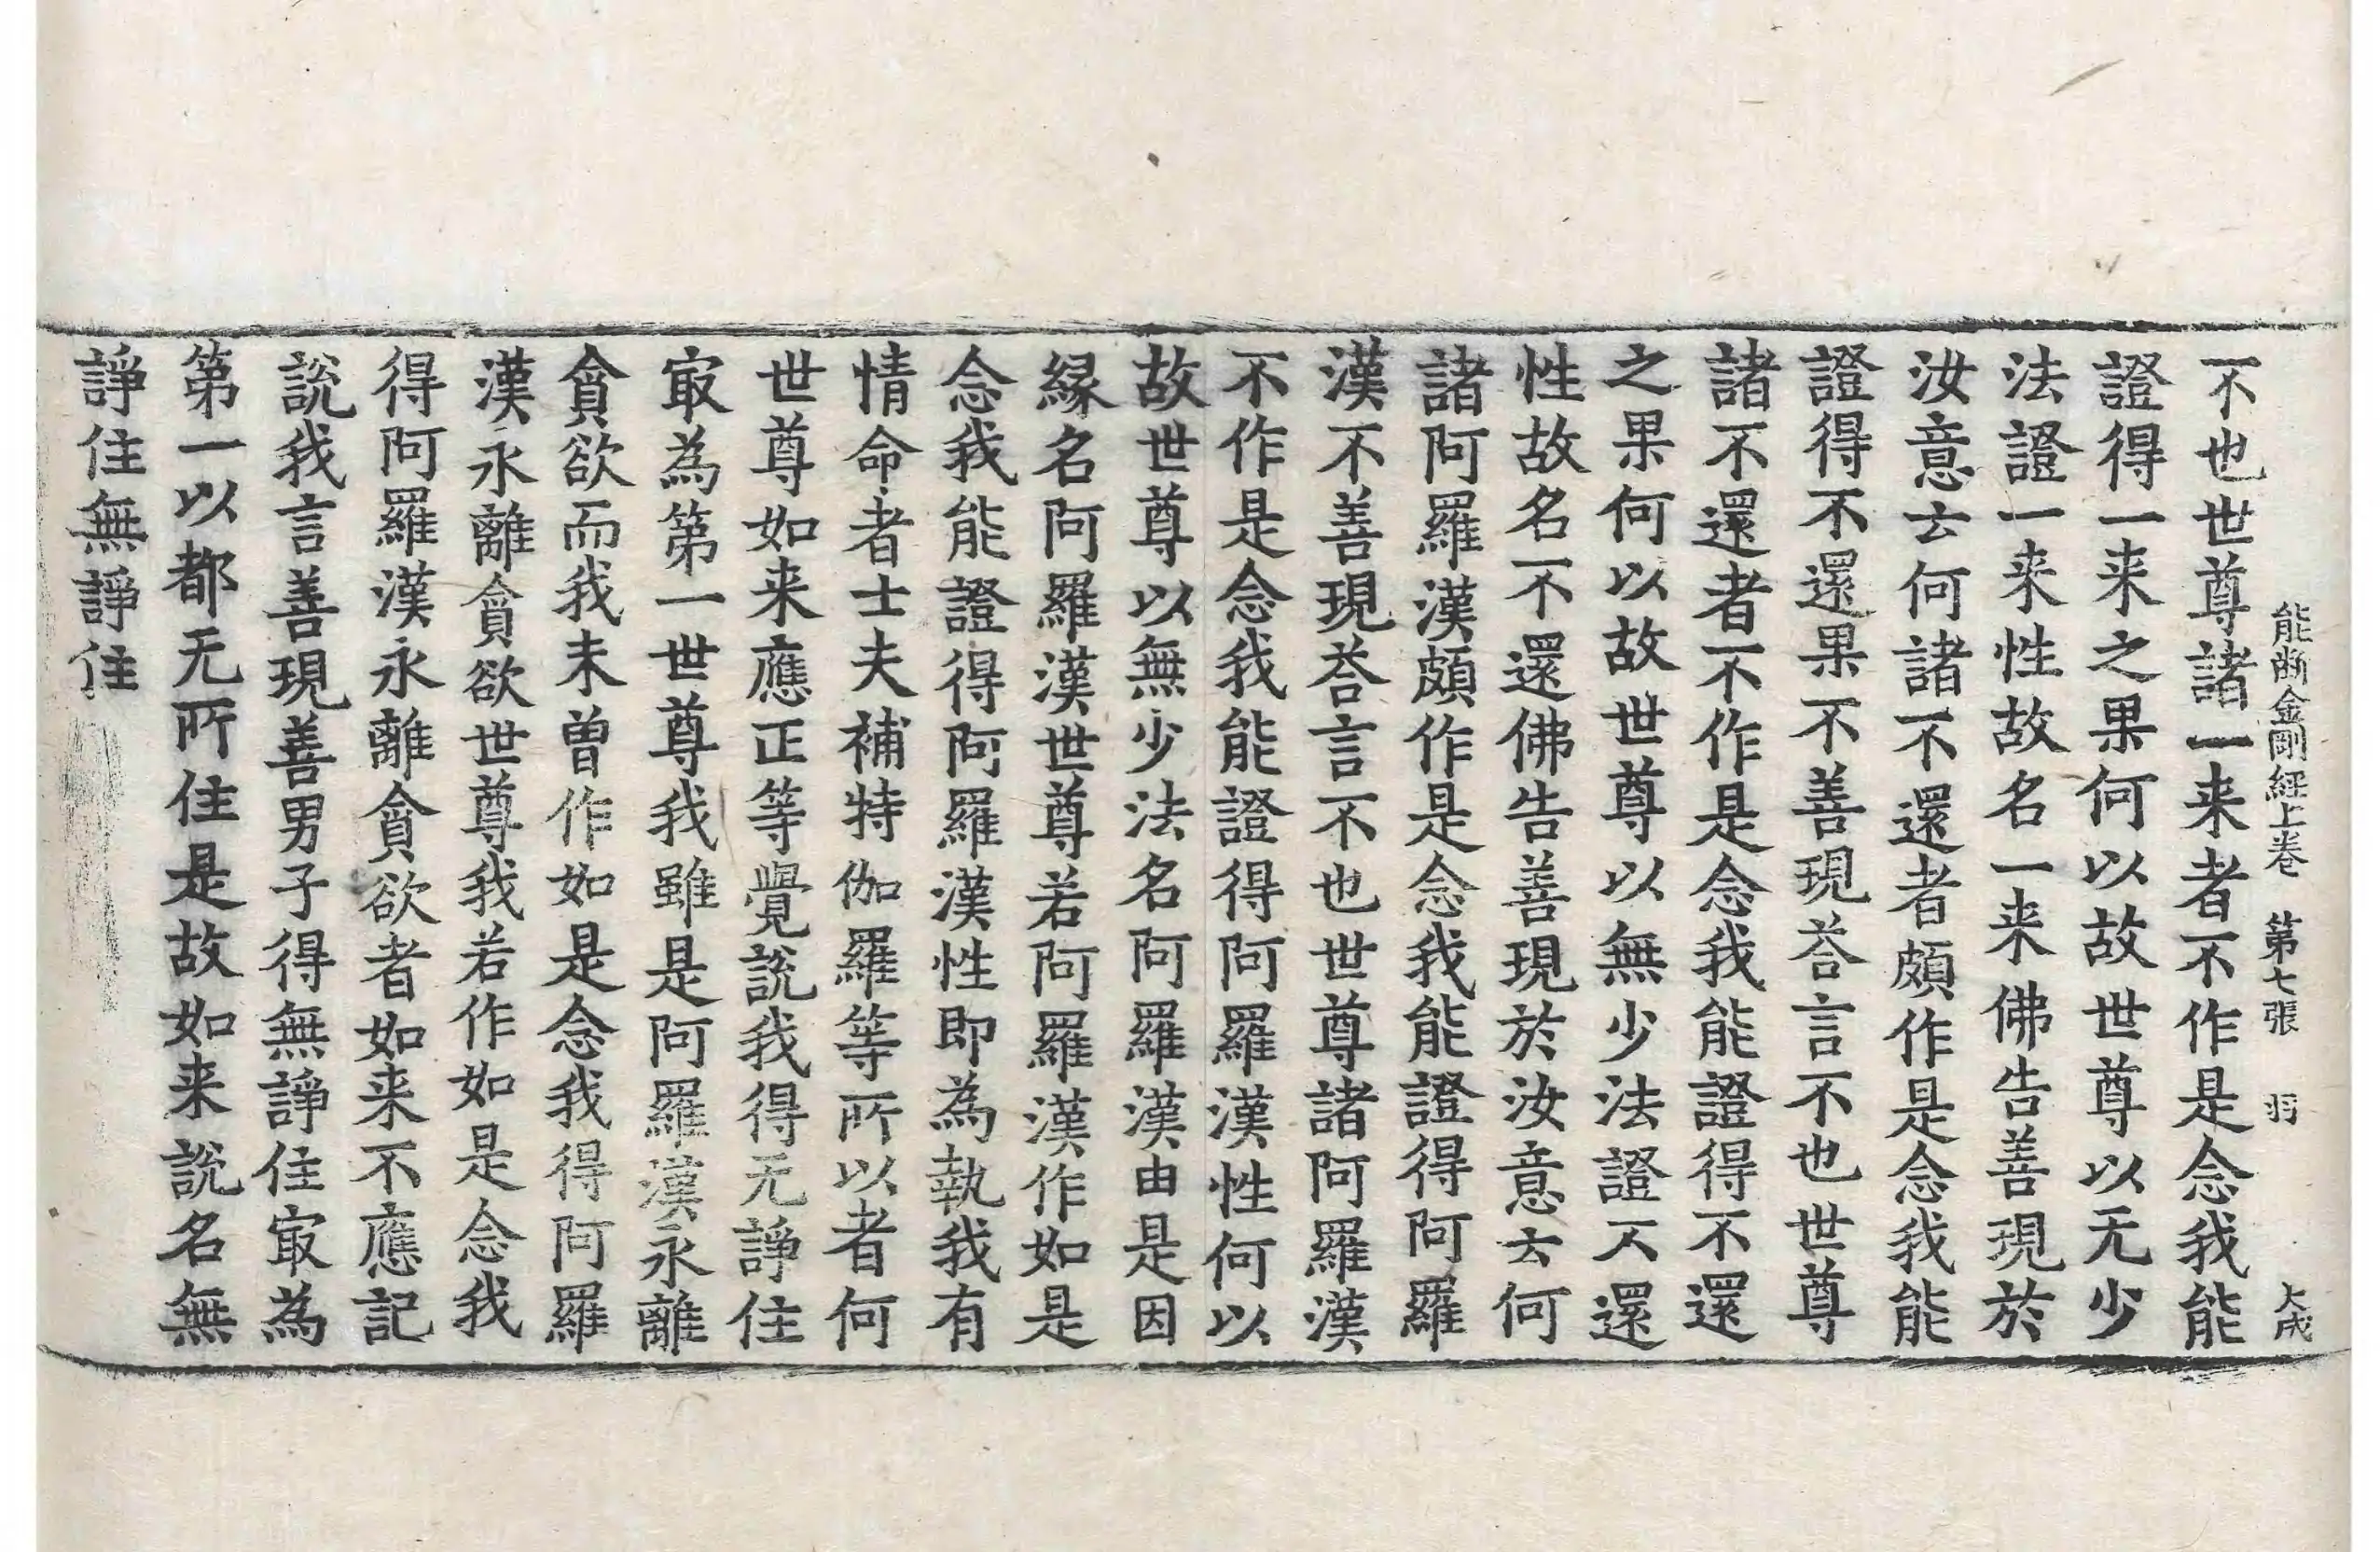 能斷金剛經上卷 第七張 羽 大成
不也世尊諸一来者不作是念我能
證得一来之果何以故世尊以无少
法證一来性故名一来佛告善現於
汝意云何諸不還者頗作是念我能
證得不還果不善現荅言不也世尊
諸不還者不作是念我能證得不還
之果何以故世尊以無少法證不還
性故名不還佛告善現於汝意云何
諸阿羅漢頗作是念我能證得阿羅
漢不善現荅言不也世尊諸阿羅漢
不作是念我能證得阿羅漢性何以
故世尊以無少法名阿羅漢由是因
緣名阿羅漢世尊若阿羅漢作如是
念我能證得阿羅漢性即為執我有
情命者士夫補特伽羅等所以者何
世尊如来應正等覺說我得无諍住
㝡為第一世尊我雖是阿羅漢永離
貪欲而我未曾作如是念我得阿羅
漢永離貪欲世尊我若作如是念我
得阿羅漢永離貪欲者如来不應記
說我言善現善男子得無諍住㝡為
第一以都无所住是故如来說名無
諍住無諍住